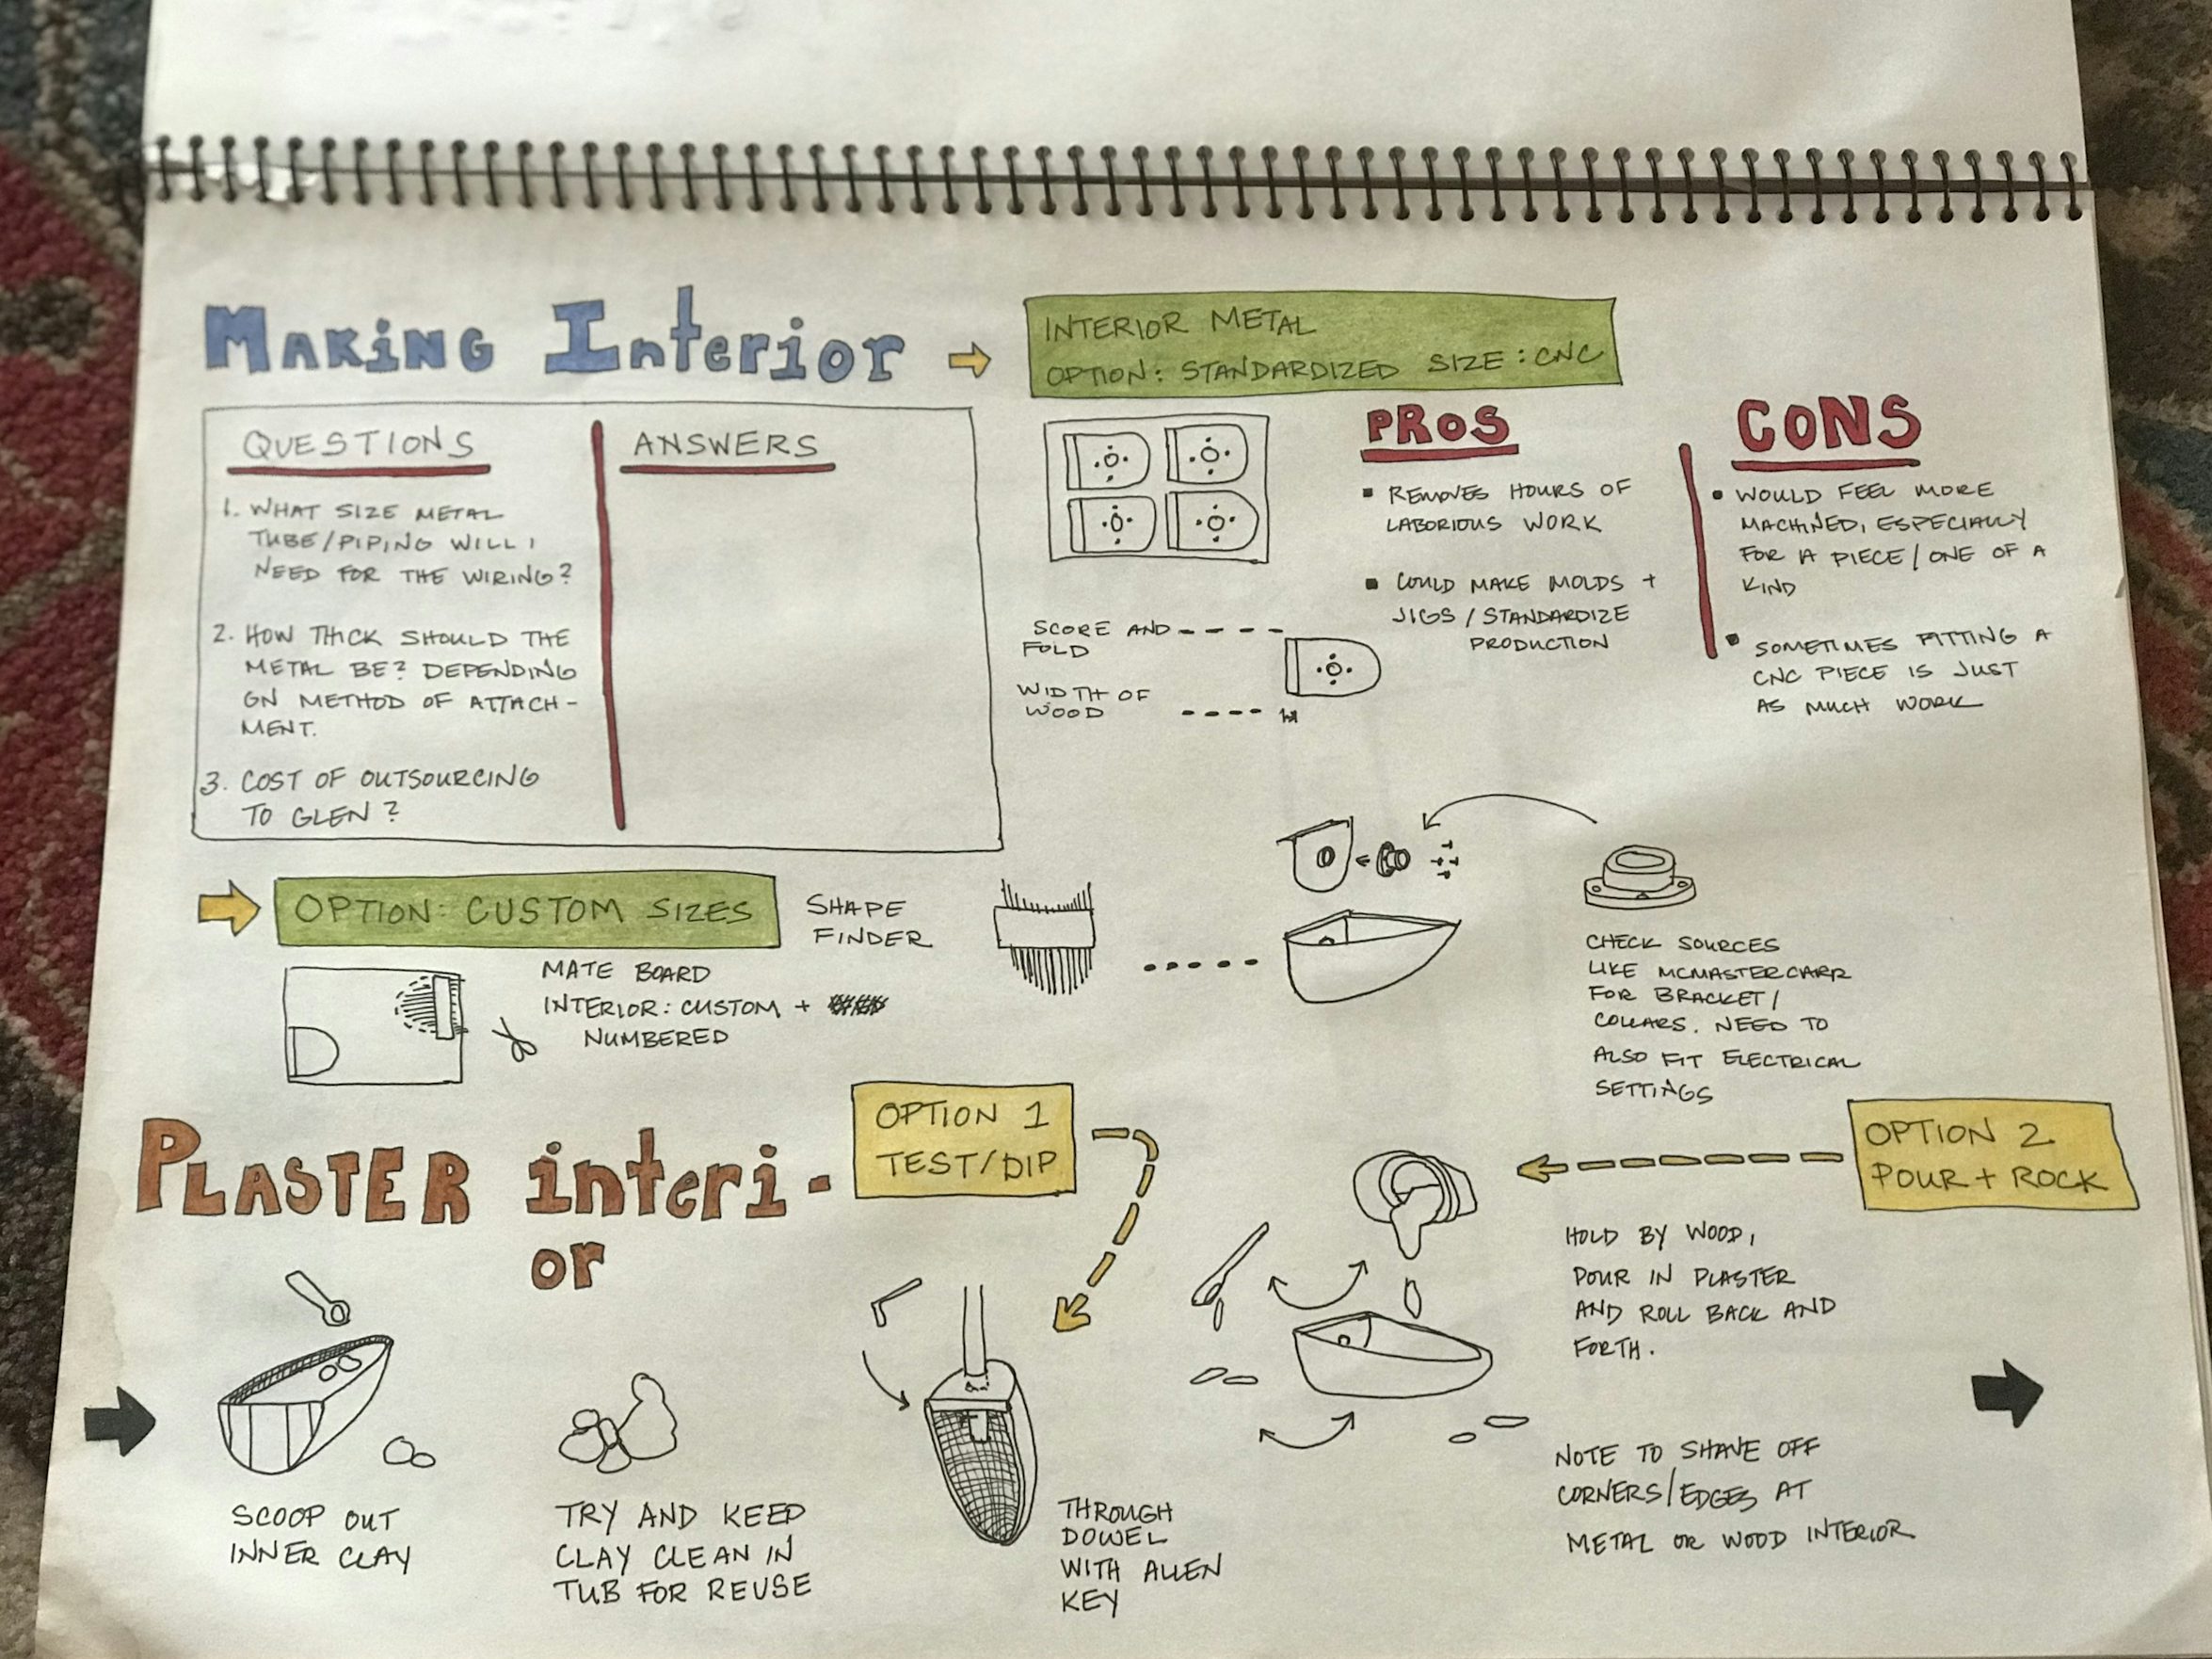 MAKING Interior
INTERIOR METAL
OPTION: STANDARDIZED SIZE: CNC
QUESTIONS
ANSWERS
1. WHAT SIZE METAL
TUBE/PIPING WILL I
NEED FOR THE WIRING?
2. HOW THICK SHOULD THE
METAL BE? DEPENDING
ON METHOD OF ATTACH-
MENT.
3. COST OF OUTSOURCING
TO GLEN?
PROS
▪ REMOVES HOURS OF
LABORIOUS WORK
▪ COULD MAKE MOLDS +
JIGS / STANDARDIZE
PRODUCTION
CONS
• WOULD FEEL MORE
MACHINED, ESPECIALLY
FOR A PIECE / ONE OF A
KIND
• SOMETIMES FITTING A
CNC PIECE IS JUST
AS MUCH WORK
SCORE AND
FOLD
WIDTH OF
WOOD
OPTION: CUSTOM SIZES
SHAPE
FINDER
MATE BOARD
INTERIOR: CUSTOM +
NUMBERED
CHECK SOURCES
LIKE MCMASTERCARR
FOR BRACKET/
COLLARS. NEED TO
ALSO FIT ELECTRICAL
SETTINGS
PLASTER interi-
or
OPTION 1
TEST/DIP
OPTION 2
POUR + ROCK
HOLD BY WOOD,
POUR IN PLASTER
AND ROLL BACK AND
FORTH.
SCOOP OUT
INNER CLAY
TRY AND KEEP
CLAY CLEAN IN
TUB FOR REUSE
THROUGH
DOWEL
WITH ALLEN
KEY
NOTE TO SHAVE OFF
CORNERS/EDGES AT
METAL OR WOOD INTERIOR